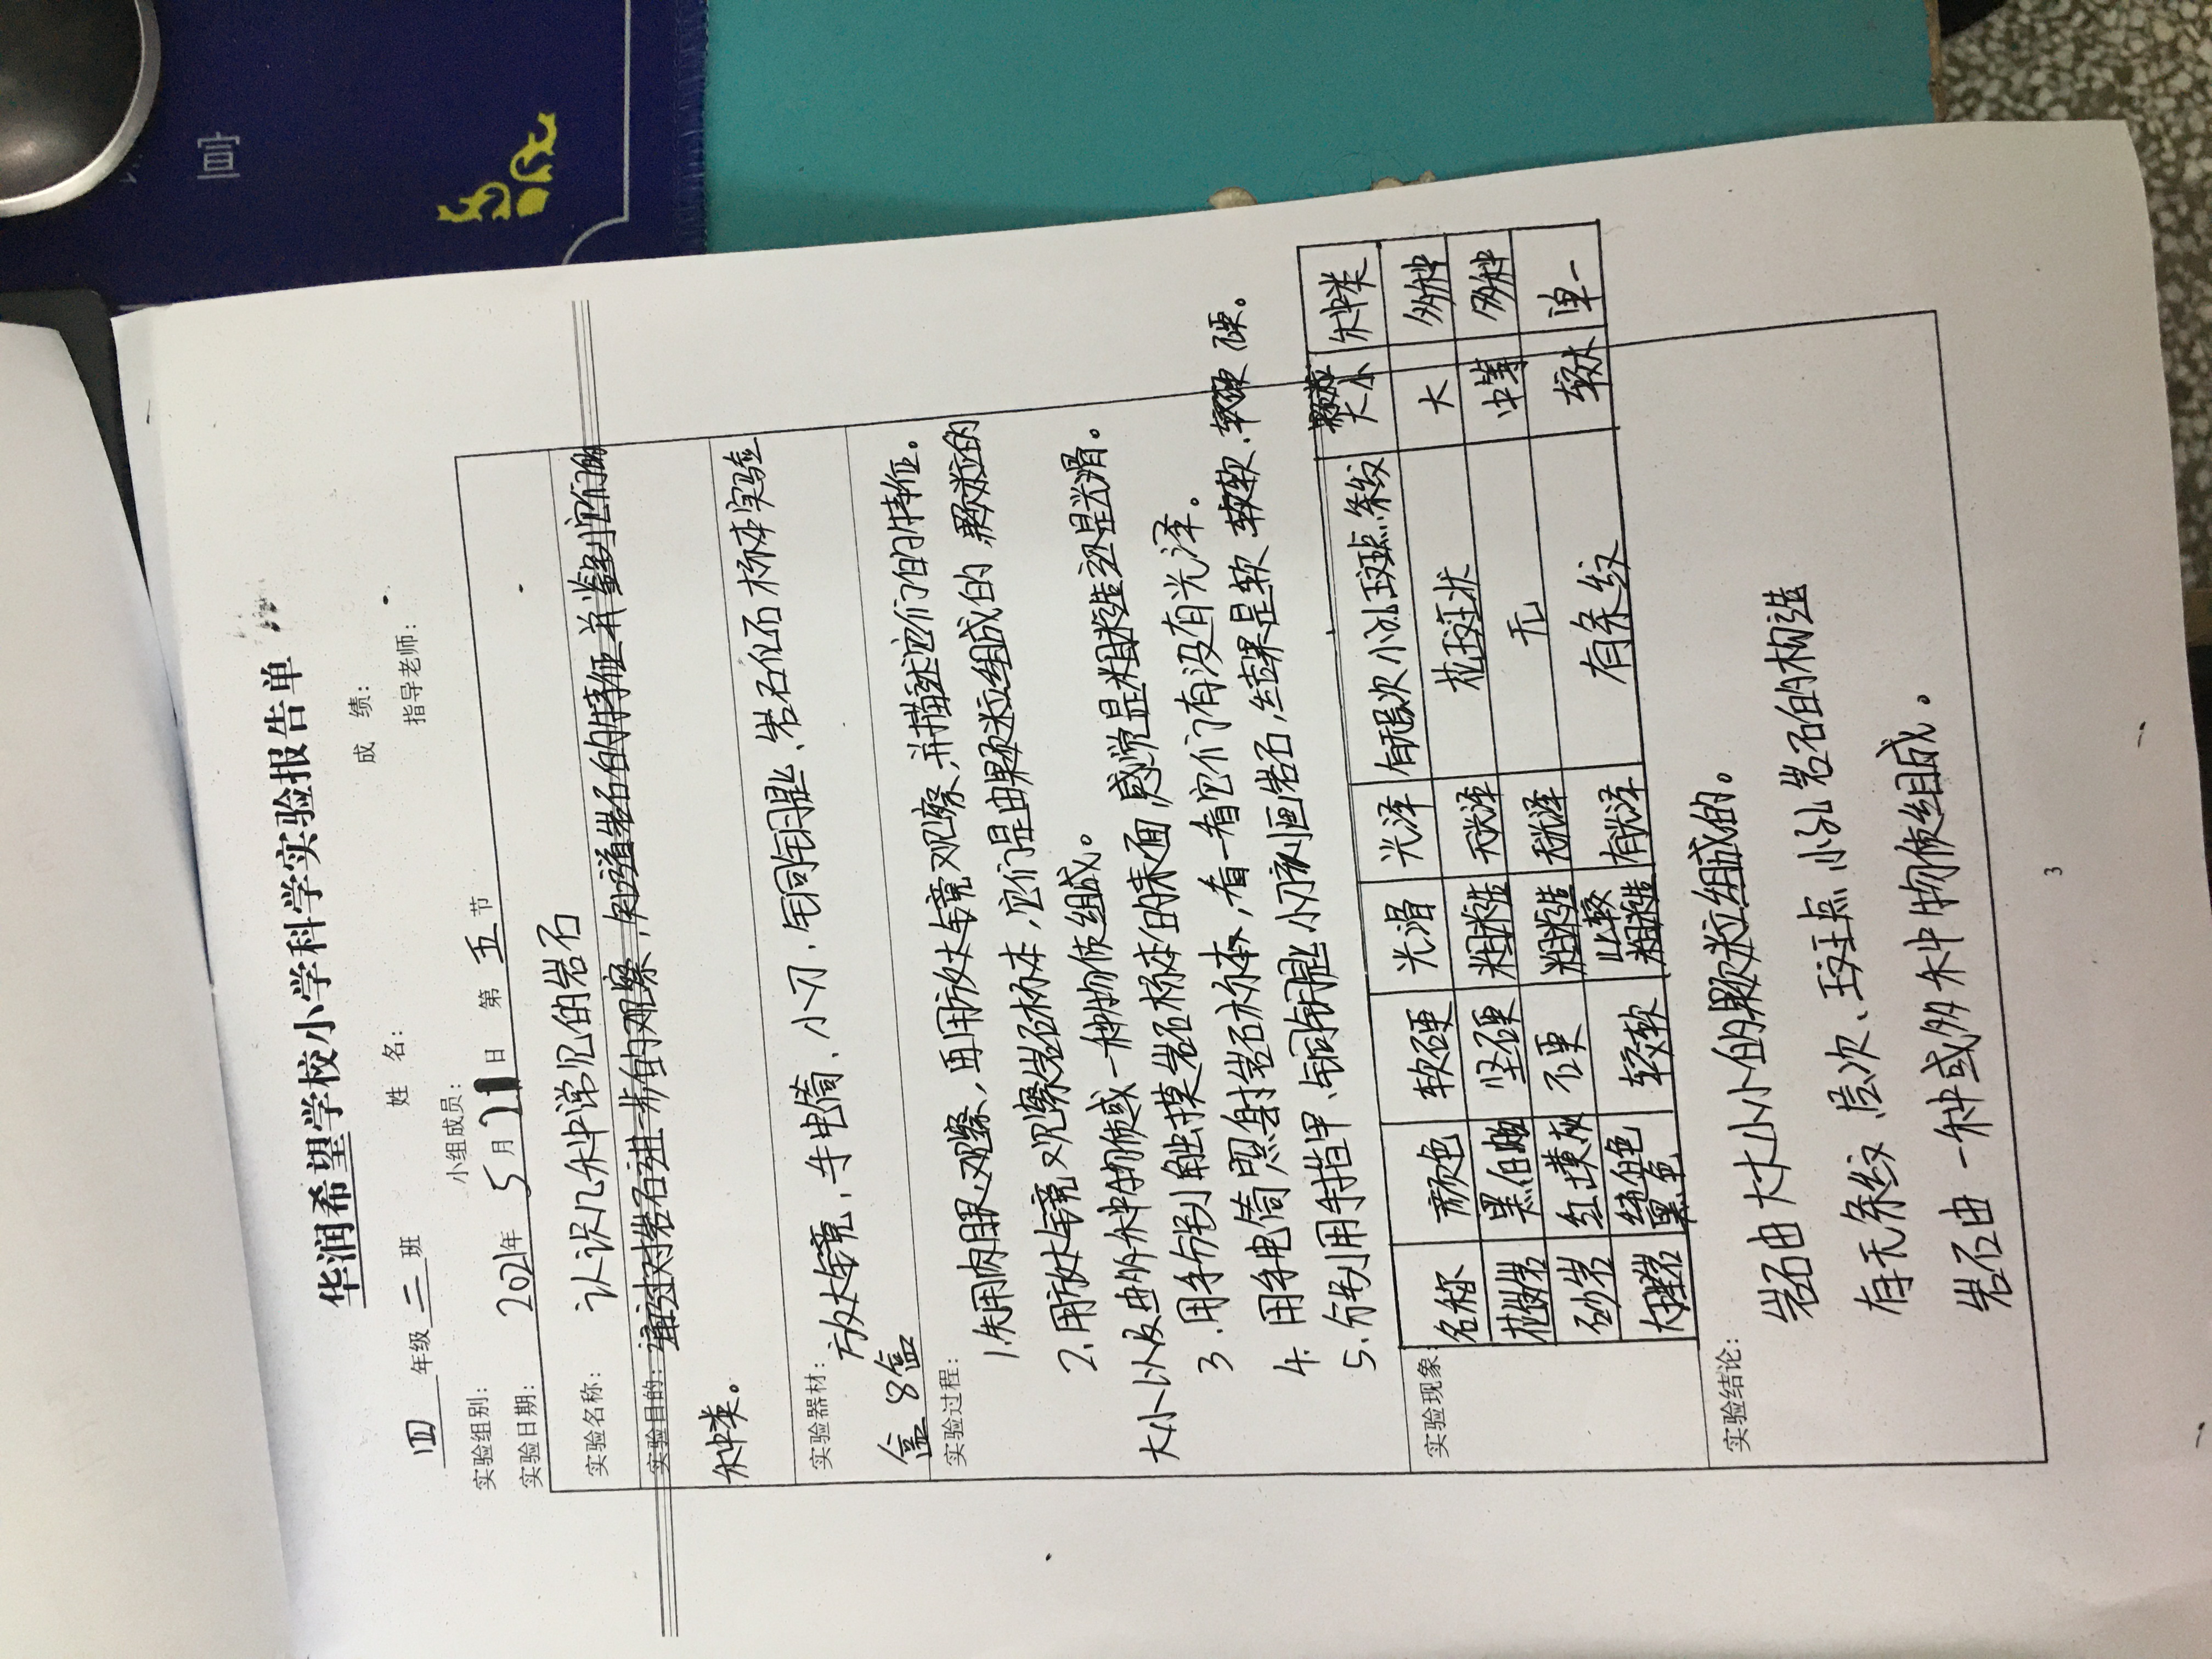 华润希望学校小学科学实验报告单
四 年级 二 班 姓 名: 成 绩:
实验组别: 小组成员: 指导老师:
实验日期: 2021年 5 月 21 日 第 五 节
实验名称: 认识几种常见的岩石
实验目的: 通过对岩石进一步的观察,知道岩石的特征并鉴别它们的
种类。
实验器材:
放大镜,手电筒、小刀、铜钥匙、岩石化石标本实验
盒 8盒
实验过程:
1.先用肉眼观察,再用放大镜观察,并描述它们的特征。
2.用放大镜观察岩石标本,它们是由颗粒组成的 颗粒的
大小以及由多种物质或一种物质组成。
3.用手分别触摸岩石标本的表面,感觉是粗糙还是光滑。
4.用手电筒照射岩石标本,看一看它们有没有光泽。
5.分别用手指甲、铜钥匙 小刀刻画岩石,结果是软 较软、较硬 硬。
实验现象:
名称 颜色 软硬 光滑 光泽 有层次小孔斑点条纹 颗粒大小 种类
花岗岩 黑白 坚硬 粗糙 无光泽 花斑状 大 多种
砂岩 红 黄灰 硬 粗糙 无光泽 无 中等 多种
大理岩 纯白色 黑色 较软 比较粗糙 有光泽 有条纹 较大 单一
实验结论:
岩石由大大小小的颗粒组成的。
有无条纹、层次、斑点 小孔 岩石的构造
岩石由一种或多种物质组成。
3